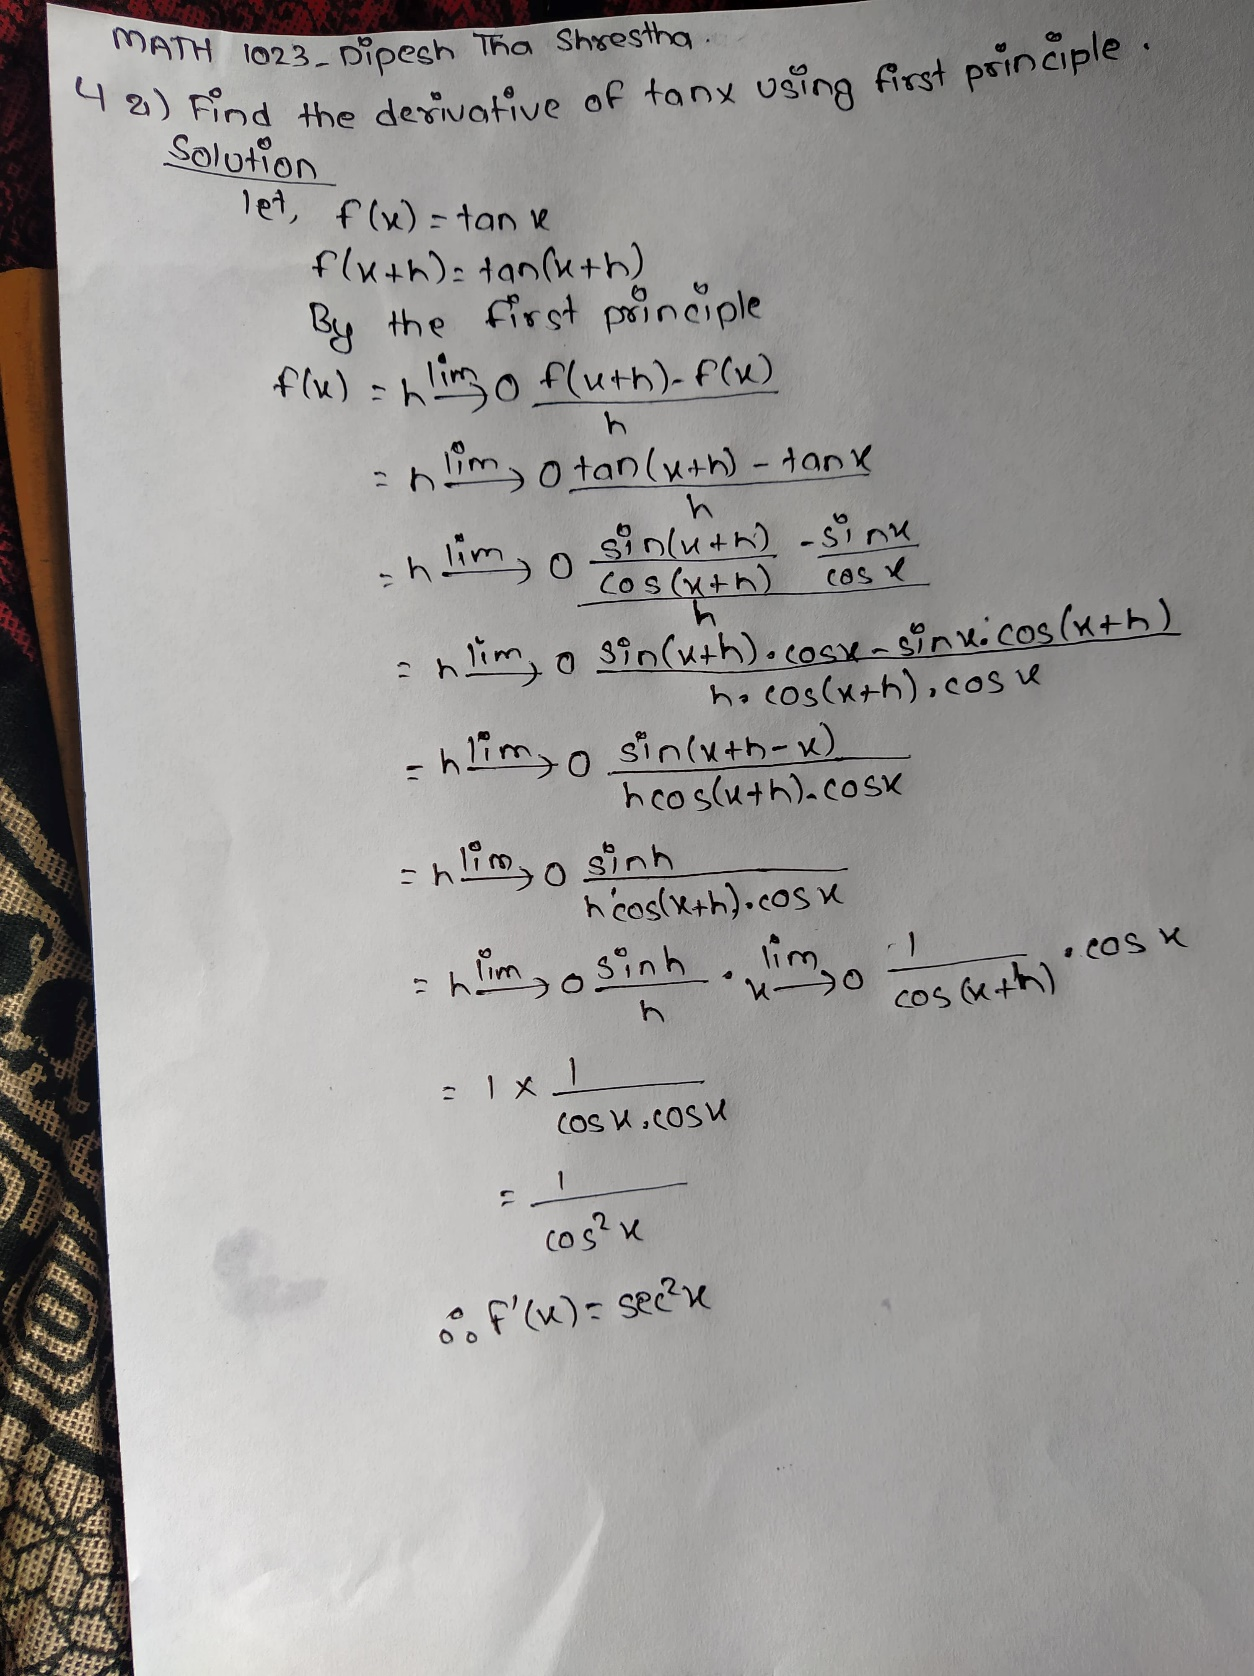 MATH 1023 - Dipesh Tha Shrestha.
4 a) Find the derivative of tanx using first principle.
Solution
let, f(x) = tan x
f(x+h) = tan(x+h)
By the first principle
f(x) = h lim→ 0 f(x+h) - f(x) / h
= h lim→ 0 tan(x+h) - tanx / h
= h lim→ 0 sin(x+h) / cos(x+h) - sinx / cos x / h
= h lim→ 0 sin(x+h) . cosx - sinx . cos(x+h) / h . cos(x+h) . cos x
= h lim→ 0 sin(x+h-x) / hcos(x+h) . cosx
= h lim→ 0 sinh / h cos(x+h) . cos x
= h lim→ 0 sinh / h . x lim→ 0 1 / cos(x+h) . cos x
= 1 × 1 / cosx . cosx
= 1 / cos²x
∴ f'(x) = sec²x